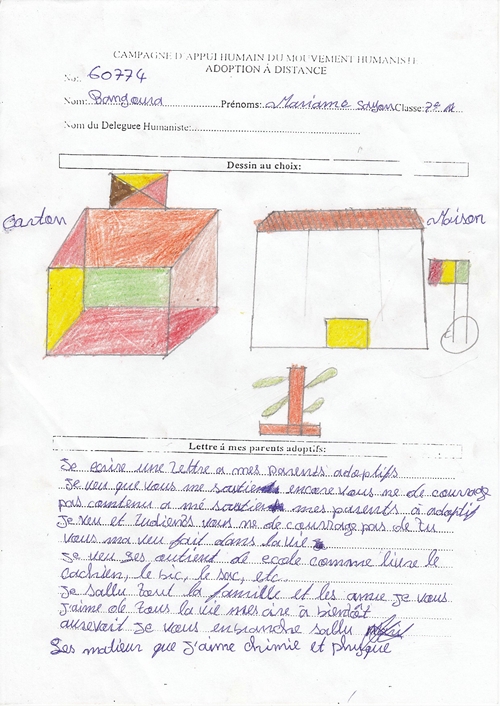 CAMPAGNE D'APPUI HUMAIN DU MOUVEMENT HUMANISTE
ADOPTION À DISTANCE
No: 60774
Nom: Bangoura Prénoms: Mariame Sayon Classe: 7e A
Nom du Deleguee Humaniste:
Dessin au choix:
Carton
Maison
Lettre à mes parents adoptifs:
Je ecrire une lettre a mes parents adoptifs
Je veu que vous me soutien encore vous ne de couvrage
pas contenu a me soutien mes parents à adoptif
Je veu et vous ne de courrage pas de tu
vous ma veu fait dans la vie
Je veu ses outient de ecole comme livre le
cachien, le bic, le sac, etc
Je sallu tout la famille et les amie je vous
j'aime de tous la vie mes aire à bientôt
aurevait je vous enbranche sallu
Ses matieur que j'aime chimie et physique